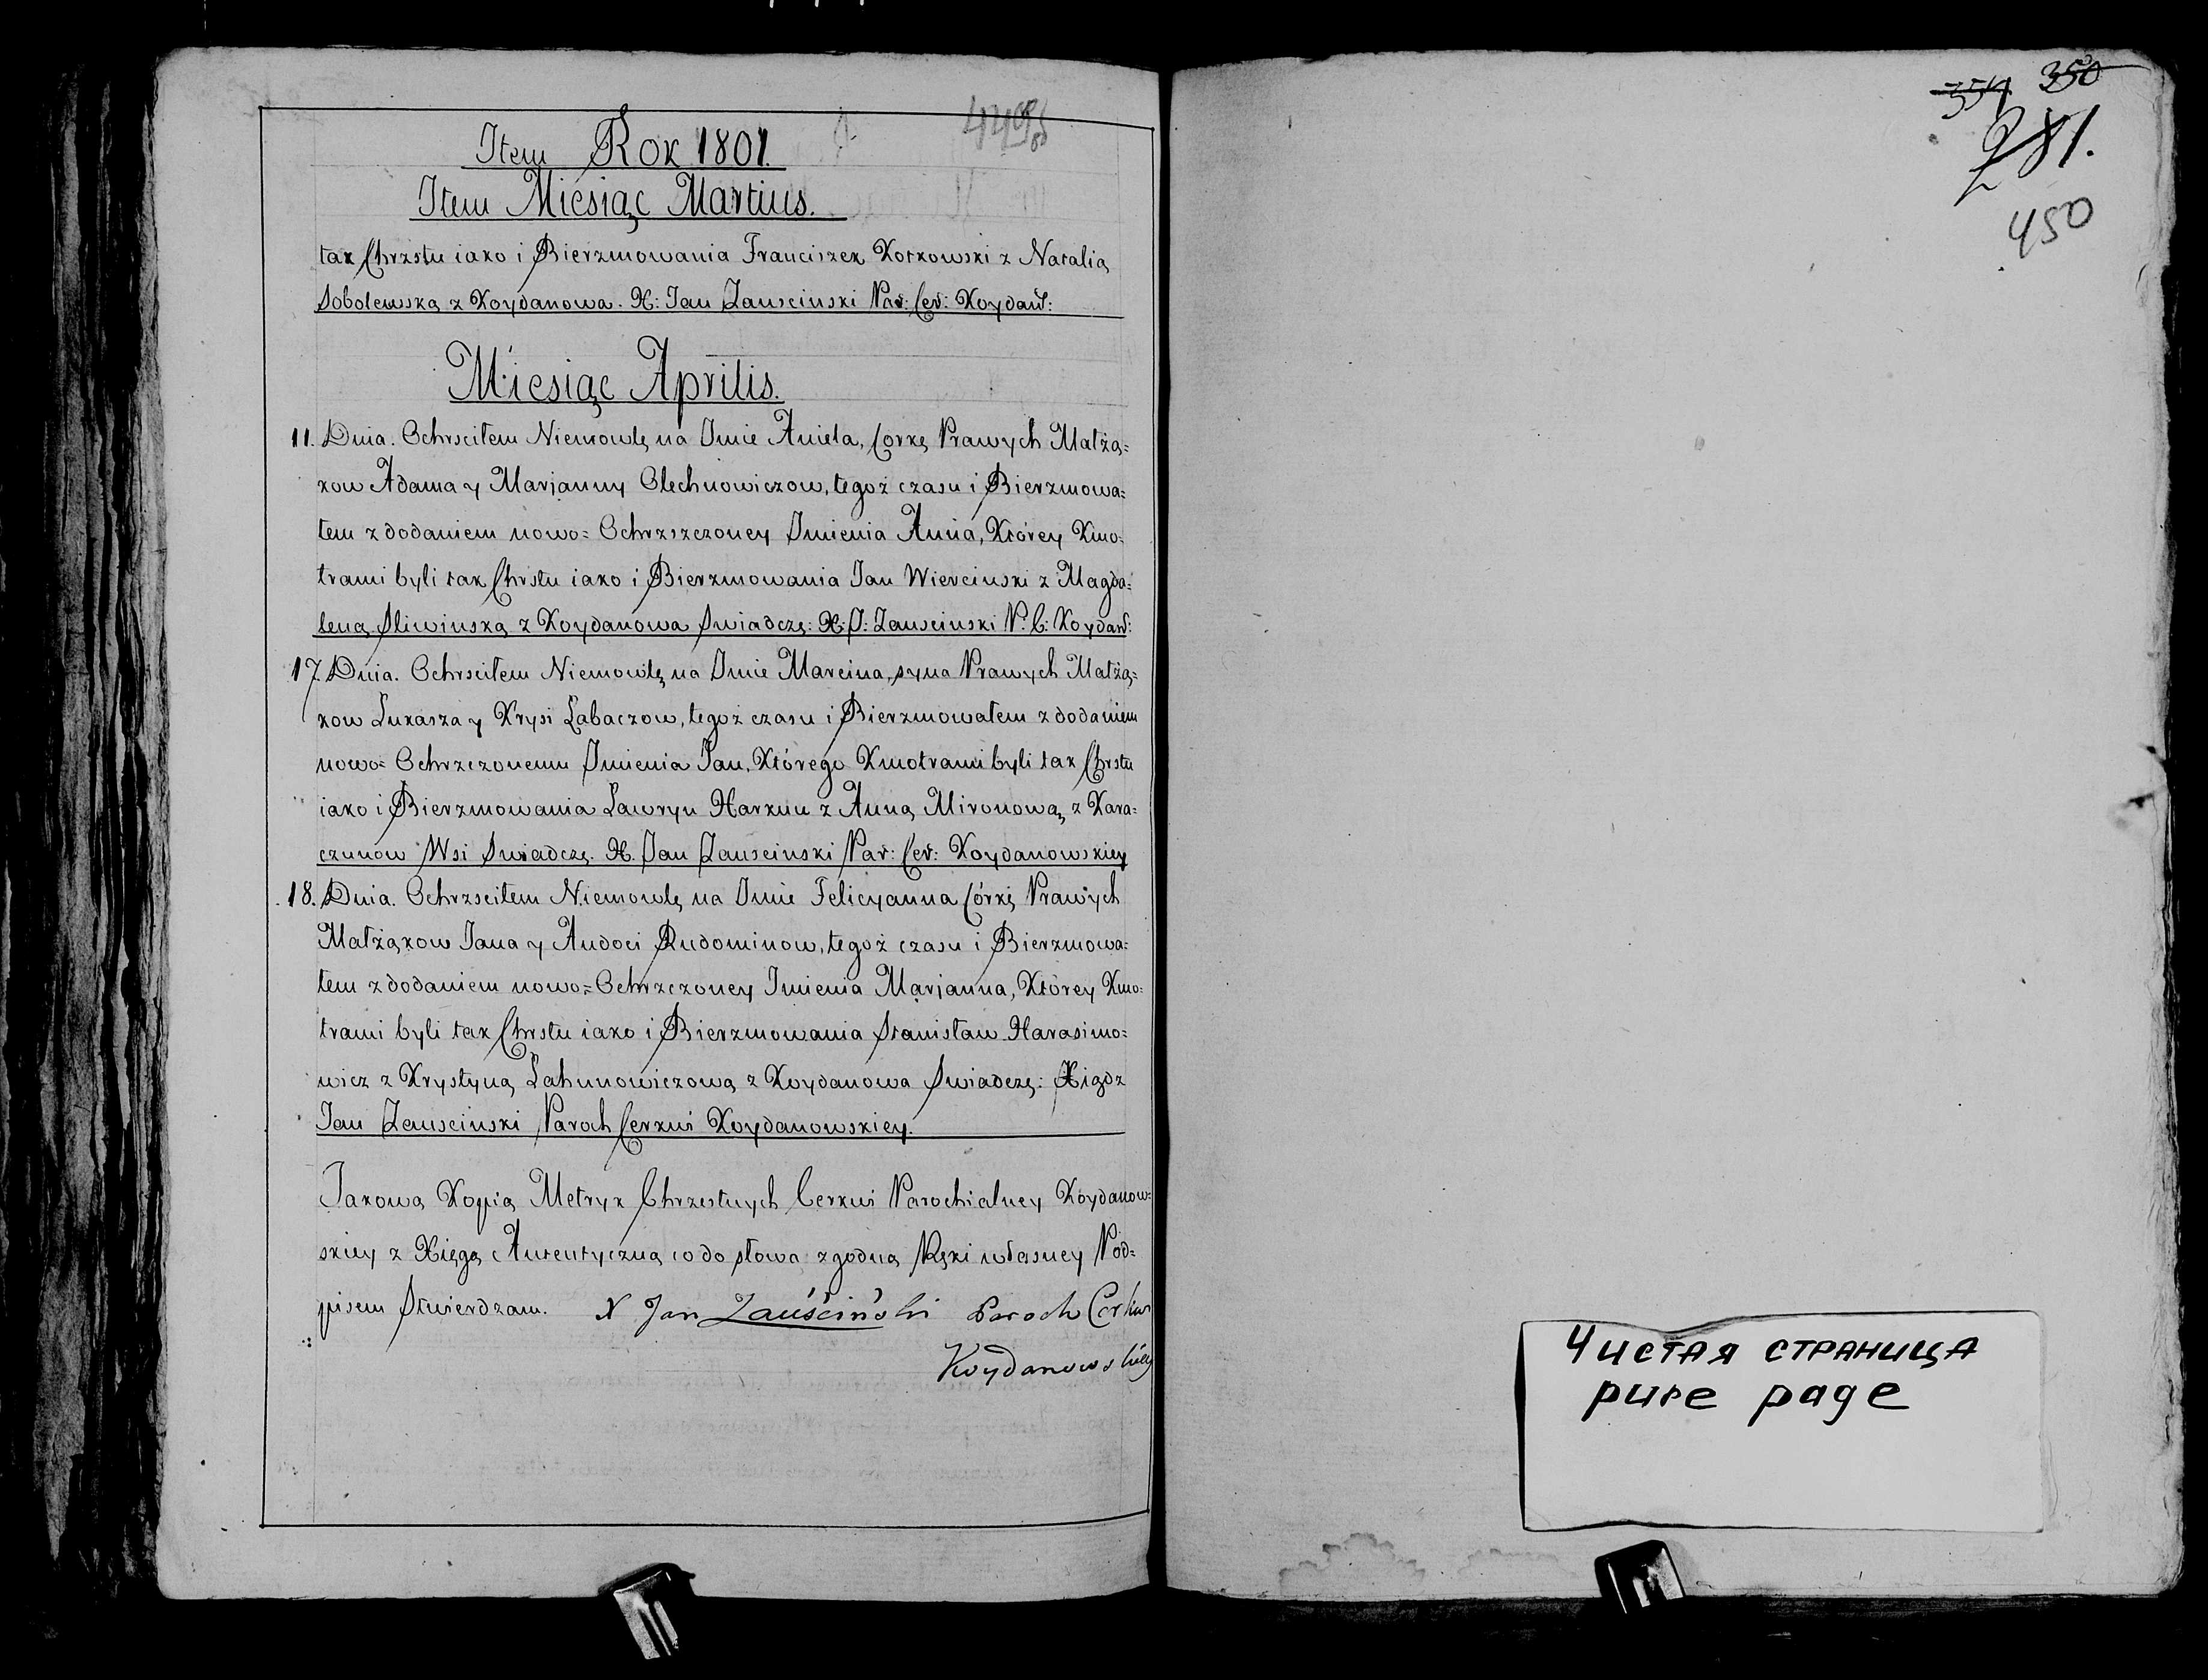 Item Rok 1801.
Item Miesiąc Martius.
tak Chrzstu iako i Bierzmowania Franciszek Kotkowski z Natalią
Sobolewską z Koydanowa. X: Jan Zauscinski Par: Cer: Koydaw:
Miesiąc Aprilis.
11. Dnia. Ochrsciłem Niemowlę na Imie Aniela, Corkę Prawych Małżą=
kow Adama y Marjanny Olechnowiczow, tegoż czasu i Bierzmowa=
łem z dodaniem nowo= Ochrzszczoney Imienia Anna, Którey Kmo=
trami byli tak Chrstu iako i Bierzmowania Jan Wiercinski z Magda=
leną Sliwinską z Koydanowa Swiadczę: X: J: Zauscinski P: C: Koydaw:
17. Dnia. Ochrsciłem Niemowlę na Imie Marcina, syna Prawych Małżą=
kow Łukasza y Krysi Łabaczow, tegoż czasu i Bierzmowałem z dodaniem
nowo= Ochrzczonemu Imienia Jan, Którego Kmotrami byli tak Chrstu
iako i Bierzmowania Ławryn Harkun z Anną Mironową z Kara=
czunow Wsi Swiadczę. X. Jan Zauscinski Par: Cer: Koydanowskiey
18. Dnia. Ochrzsciłem Niemowlę na Imie Felicyanna Córkę Prawych
Małżąkow Jana y Audoci Rudominow, tegoż czasu i Bierzmowa=
łem z dodaniem nowo= Ochrzczoney Imienia Marjanna, Którey Kmo=
trami byli tak Chrstu iako i Bierzmowania Stanisław Harasimo=
wicz z Krystyną Łahunowiczową z Koydanowa Swiadczę: Xiądz
Jan Zauscinski Paroch Cerkwi Koydanowskiey.
Jakową Kopią Metryk Chrzestnych Cerkwi Parochialney Koydanow=
skiey z Xięgą Autentyczną co do słowa zgodną Ręki własney Pod=
pisem Stwierdzam. X Jan Zauściński Paroch Cerkwi
Koydanowskiey
350
281.
450
Чистая страница
pure page